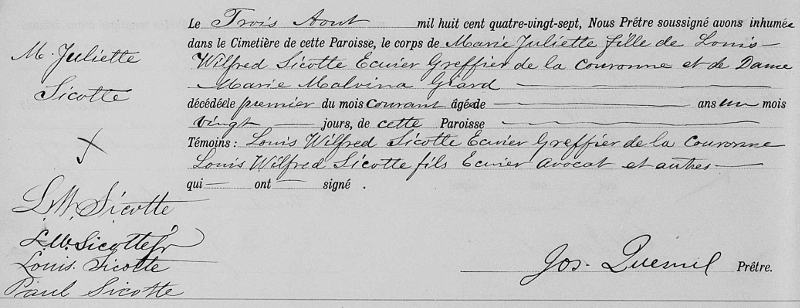 M. Juliette
Sicotte
Le Trois Aout mil huit cent quatre-vingt-sept, Nous Prêtre soussigné avons inhumée
dans le Cimetière de cette Paroisse, le corps de Marie Juliette fille de Louis
Wilfred Sicotte Ecuier Greffier de la Couronne et de Dame
Marie Malvina Giard
décédée le premier du mois Courant âgée de ans un mois
vingt jours, de cette Paroisse
Témoins: Louis Wilfred Sicotte Ecuier Greffier de la Couronne
Louis Wilfred Sicotte fils Ecuier Avocat et autres
qui ont signé.
L.W. Sicotte
L.W. Sicotte Jr
Louis Sicotte
Paul Sicotte
Jos. Quemil Prêtre.